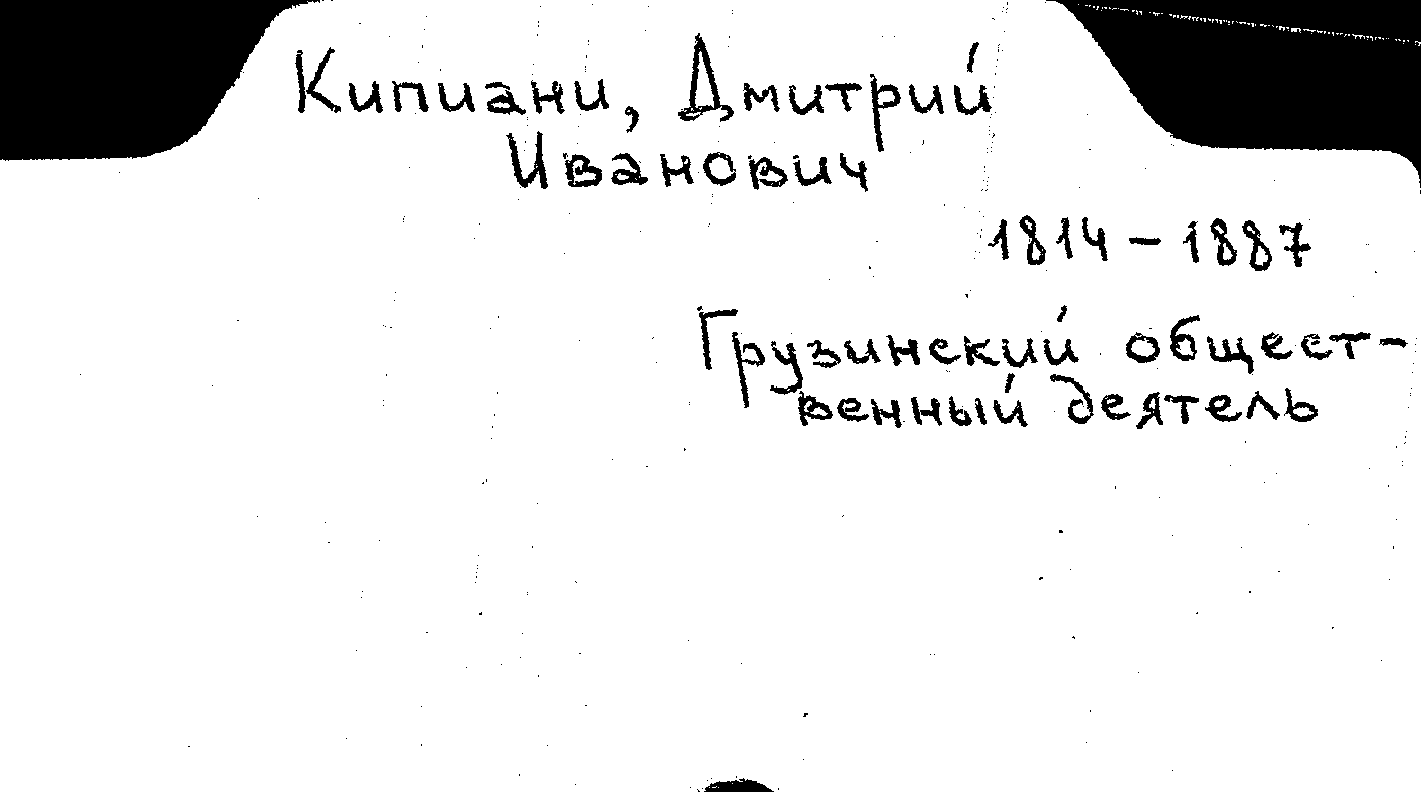 Кипиани, Дмитрий
Иванович
1814 – 1887
Грузинский общест-
венный деятель